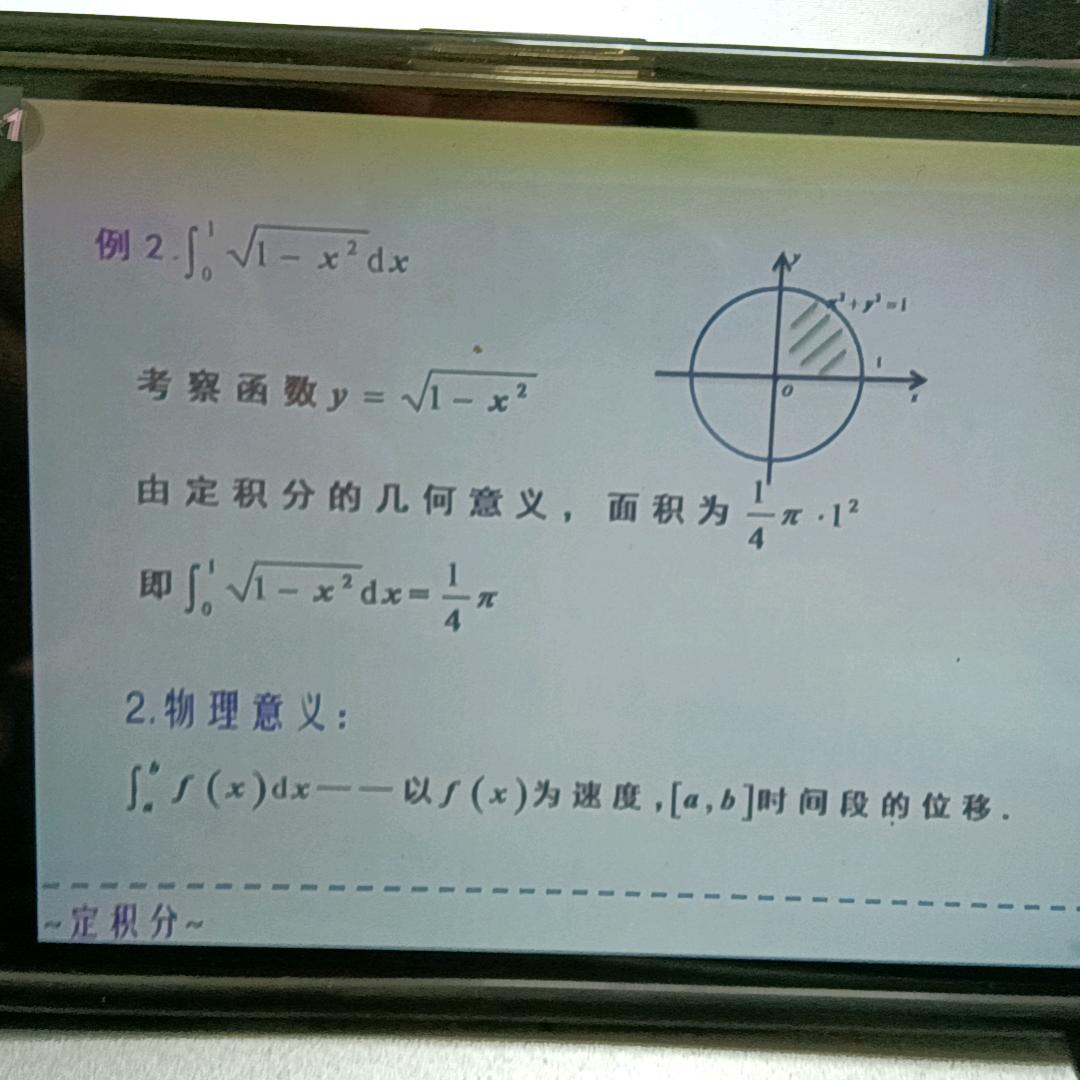 1
例 2. ∫₀¹ √(1 − x²) dx
y
x² + y² = 1
1
o
x
考察函数 y = √(1 − x²)
由定积分的几何意义，面积为 1/4 π · 1²
即 ∫₀¹ √(1 − x²) dx = 1/4 π
2. 物理意义：
∫ₐᵇ f (x) dx —— 以 f (x) 为速度, [a, b] 时间段的位移.
~定积分~